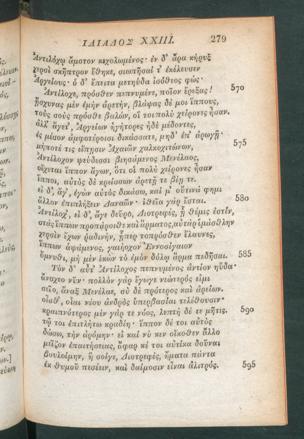 ΙΛΙΑΔΟΣ XXIII. 279
Ἀντιλόχῳ ἄμοτον κεχολωμένος· ἐν δ' ἄρα κήρυξ
χειρὶ σκῆπτρον ἔθηκε, σιωπῆσαί τ' ἐκέλευσεν
Ἀργείους· ὁ δ' ἔπειτα μετηύδα ἰσόθεος φώς·
Ἀντίλοχε, πρόσθεν πεπνυμένε, ποῖον ἔρεξας! 570
ᾔσχυνας μὲν ἐμὴν ἀρετὴν, βλάψας δέ μοι ἵππους,
τοὺς σοὺς πρόσθε βαλὼν, οἵ τοι πολὺ χείρονες ἦσαν.
ἀλλ' ἄγετ', Ἀργείων ἡγήτορες ἠδὲ μέδοντες,
ἐς μέσον ἀμφοτέροισι δικάσσατε, μηδ' ἐπ' ἀρωγῇ·
μήποτέ τις εἴπῃσιν Ἀχαιῶν χαλκοχιτώνων, 575
Ἀντίλοχον ψεύδεσσι βιησάμενος Μενέλαος,
οἴχεται ἵππον ἄγων, ὅτι οἱ πολὺ χείρονες ἦσαν
ἵπποι, αὐτὸς δὲ κρείσσων ἀρετῇ τε βίῃ τε.
εἰ δ', ἄγ', ἐγὼν αὐτὸς δικάσω, καί μ' οὔτινά φημι
ἄλλον ἐπιπλήξειν Δαναῶν· ἰθεῖα γὰρ ἔσται. 580
Ἀντίλοχ', εἰ δ', ἄγε δεῦρο, Διοτρεφὲς, ἣ θέμις ἐστὶν,
στὰς ἵππων προπάροιθε καὶ ἅρματος, αὐτὰρ ἱμάσθλην
χερσὶν ἔχων ῥαδινὴν, ᾗπερ τοπρόσθεν ἔλαυνες,
ἵππων ἁψάμενος, γαιήοχον Ἐννοσίγαιον
ὄμνυθι, μὴ μὲν ἑκὼν τὸ ἐμὸν δόλῳ ἅρμα πεδῆσαι. 585
Τὸν δ' αὖτ' Ἀντίλοχος πεπνυμένος ἀντίον ηὔδα·
ἄνσχεο νῦν· πολλὸν γὰρ ἔγωγε νεώτερός εἰμι
σεῖο, ἄναξ Μενέλαε, σὺ δὲ πρότερος καὶ ἀρείων.
οἶσθ', οἷαι νέου ἀνδρὸς ὑπερβασίαι τελέθουσιν·
κραιπνότερος μὲν γάρ τε νόος, λεπτὴ δέ τε μῆτις. 590
τῷ τοι ἐπιτλήτω κραδίη· ἵππον δέ τοι αὐτὸς
δώσω, τὴν ἀρόμην· εἰ καί νύ κεν οἴκοθεν ἄλλο
μεῖζον ἐπαιτήσειας, ἄφαρ κέ τοι αὐτίκα δοῦναι
βουλοίμην, ἢ σοίγε, Διοτρεφὲς, ἤματα πάντα
ἐκ θυμοῦ πεσέειν, καὶ δαίμοσιν εἶναι ἀλιτρός. 595